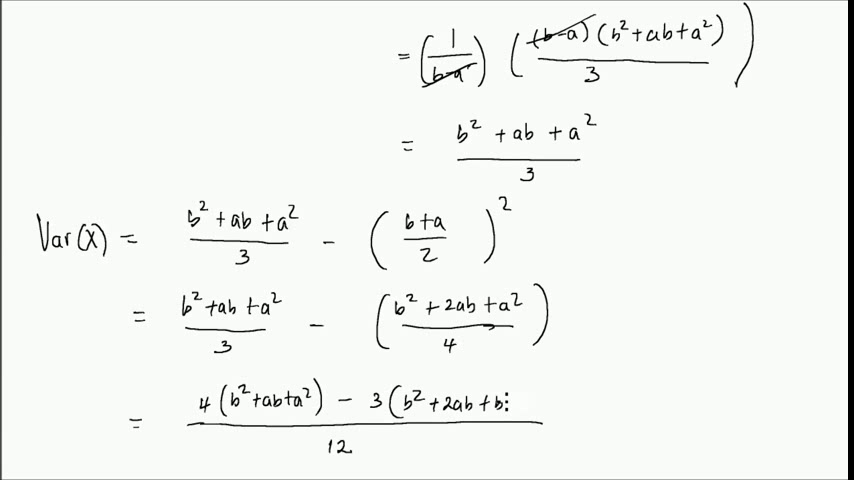 = (1/(b-a)) ((b-a)(b²+ab+a²)/3)
= (b² + ab + a²)/3
Var(X) = (b² + ab + a²)/3 - ((b+a)/2)²
= (b² + ab + a²)/3 - ((b² + 2ab + a²)/4)
= (4(b²+ab+a²) - 3(b²+2ab+b⋮)/12